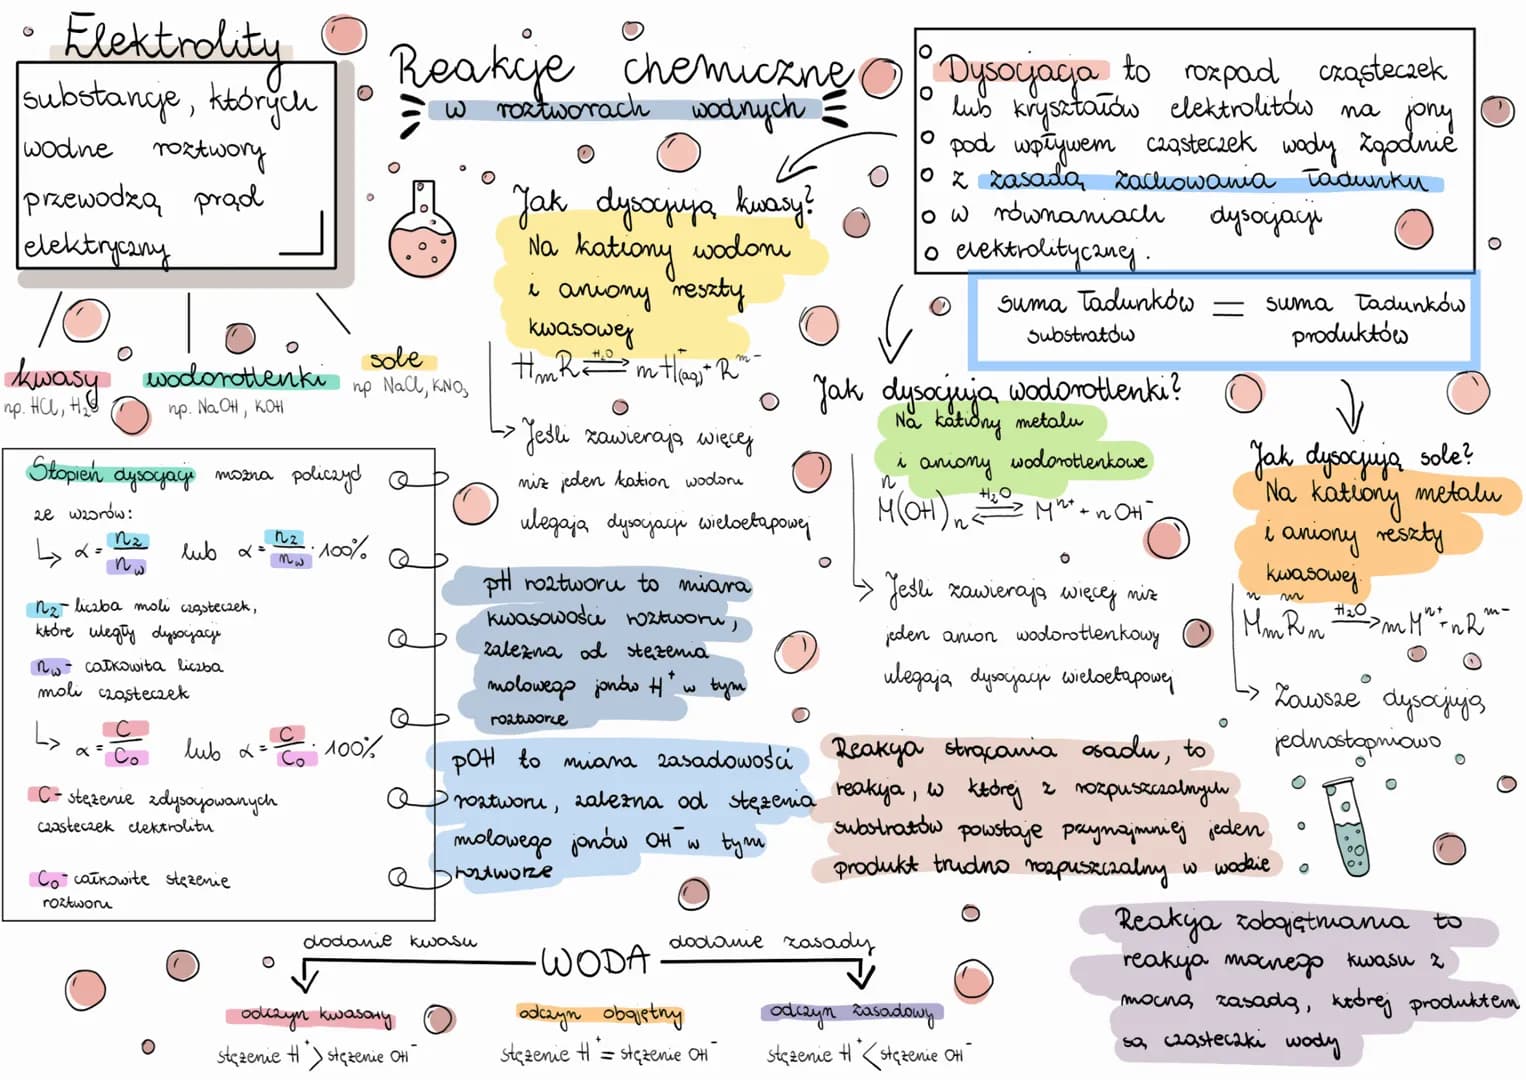 Elektrolity
substancje, których
wodne roztwory
przewodzą prąd
elektryczny
kwasy
np. HCl, H₂S
wodorotlenki
np. NaOH, KOH
sole
np. NaCl, KNO₃
Reakcje chemiczne
w roztworach wodnych
Dysocjacja to rozpad cząsteczek
lub kryształów elektrolitów na jony
pod wpływem cząsteczek wody zgodnie
z zasadą zachowania ładunku
w równaniach dysocjacji
elektrolitycznej.
suma ładunków = suma ładunków
substratów produktów
Jak dysocjują kwasy?
Na kationy wodoru
i aniony reszty
kwasowej
HₘR ⇄ (H₂O) mH⁺(aq) + Rᵐ⁻
Jeśli zawierają więcej
niż jeden kation wodoru
ulegają dysocjacji wieloetapowej
Jak dysocjują wodorotlenki?
Na kationy metalu
i aniony wodorotlenkowe
n
M(OH)ₙ ⇄ (H₂O) Mⁿ⁺ + n OH⁻
Jeśli zawierają więcej niż
jeden anion wodorotlenkowy
ulegają dysocjacji wieloetapowej
Jak dysocjują sole?
Na kationy metalu
i aniony reszty
kwasowej
n m
MₘRₙ → (H₂O) mMⁿ⁺ + nRᵐ⁻
Zawsze dysocjują
jednostopniowo
Stopień dysocjacji można policzyć
ze wzorów:
α = nz/nw lub α = nz/nw · 100%
nz - liczba moli cząsteczek,
które uległy dysocjacji
nw - całkowita liczba
moli cząsteczek
α = C/C₀ lub α = C/C₀ · 100%
C - stężenie zdysocjowanych
cząsteczek elektrolitu
C₀ - całkowite stężenie
roztworu
pH roztworu to miara
kwasowości roztworu,
zależna od stężenia
molowego jonów H⁺ w tym
roztworze
pOH to miara zasadowości
roztworu, zależna od stężenia
molowego jonów OH⁻ w tym
roztworze
Reakcja strącania osadu, to
reakcja, w której z rozpuszczalnych
substratów powstaje przynajmniej jeden
produkt trudno rozpuszczalny w wodzie
Reakcja zobojętniania to
reakcja mocnego kwasu z
mocną zasadą, której produktem
są cząsteczki wody
dodanie kwasu WODA dodanie zasady
odczyn kwasowy odczyn obojętny odczyn zasadowy
stężenie H⁺ > stężenie OH⁻ stężenie H⁺ = stężenie OH⁻ stężenie H⁺ < stężenie OH⁻